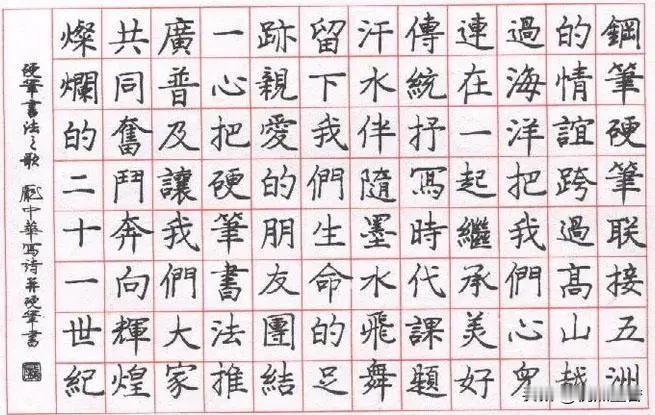 鋼筆硬筆联接五洲
的情誼跨過髙山越
過海洋把我們心身
連在一起繼承美好
傳統抒冩時代課題
汗水伴隨墨水飛舞
留下我們生命的足
跡親愛的朋友團結
一心把硬筆書法推
廣普及讓我們大家
共同奮鬥奔向輝煌
燦爛的二十一世紀
硬筆書法之歌 龐中華寫詩并硬筆書